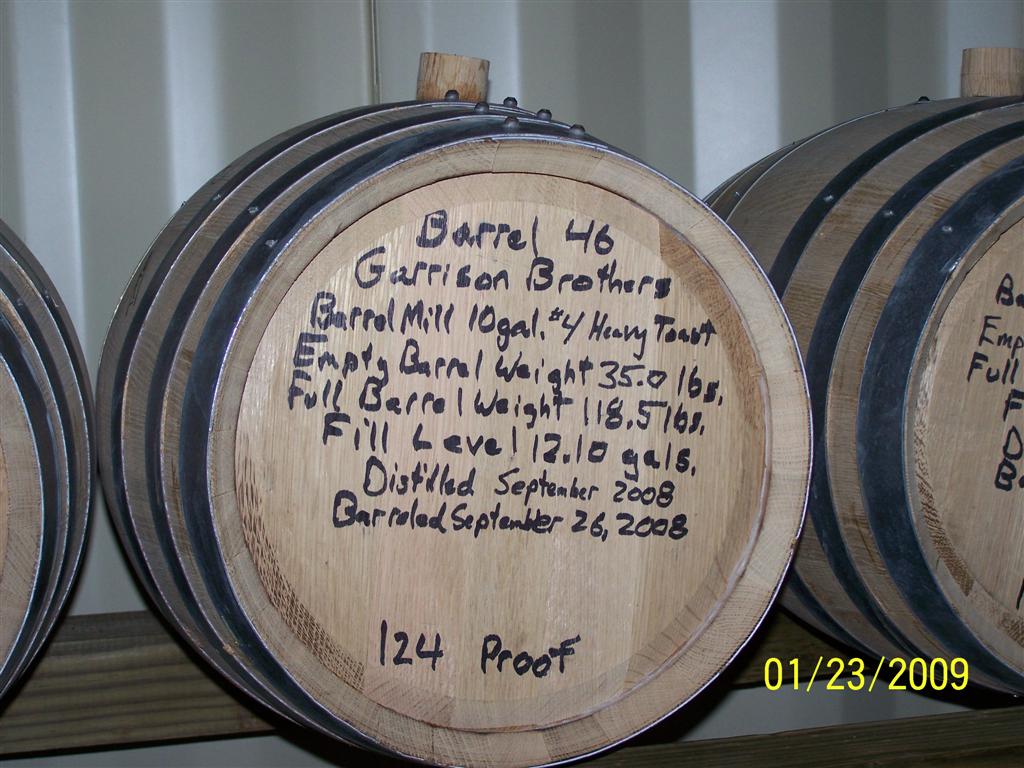 Barrel 46
Garrison Brothers
Barrel Mill 10gal. #4 Heavy Toast
Empty Barrel Weight 35.0 lbs.
Full Barrel Weight 118.5 lbs.
Fill Level 12.10 gals.
Distilled September 2008
Barreled September 26, 2008
124 Proof
Full
01/23/2009